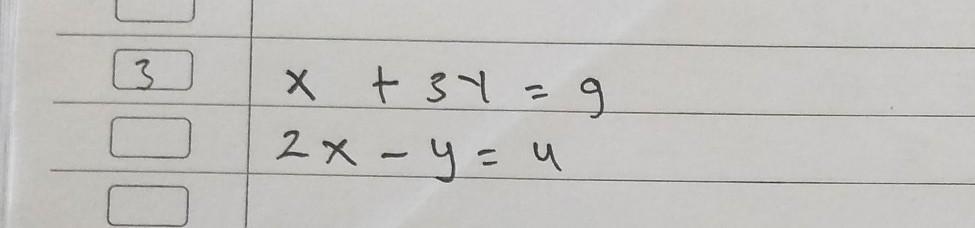 3 x + 3y = 9
2x - y = 4